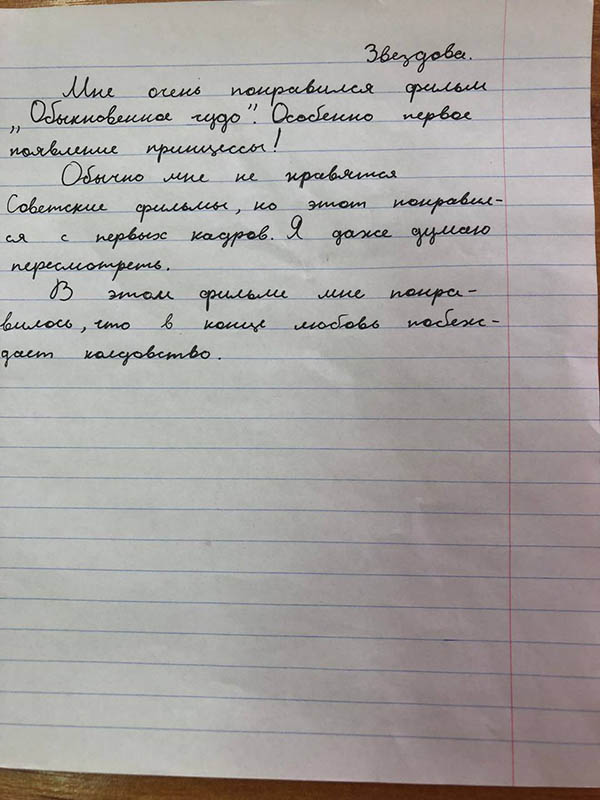 Звездова.
Мне очень понравился фильм
„Обыкновенное чудо". Особенно первое
появление принцессы!
Обычно мне не нравятся
Советские фильмы, но этот понравил-
ся с первых кадров. Я даже думаю
пересмотреть.
В этом фильме мне понра-
вилось, что в конце любовь побеж-
дает колдовство.